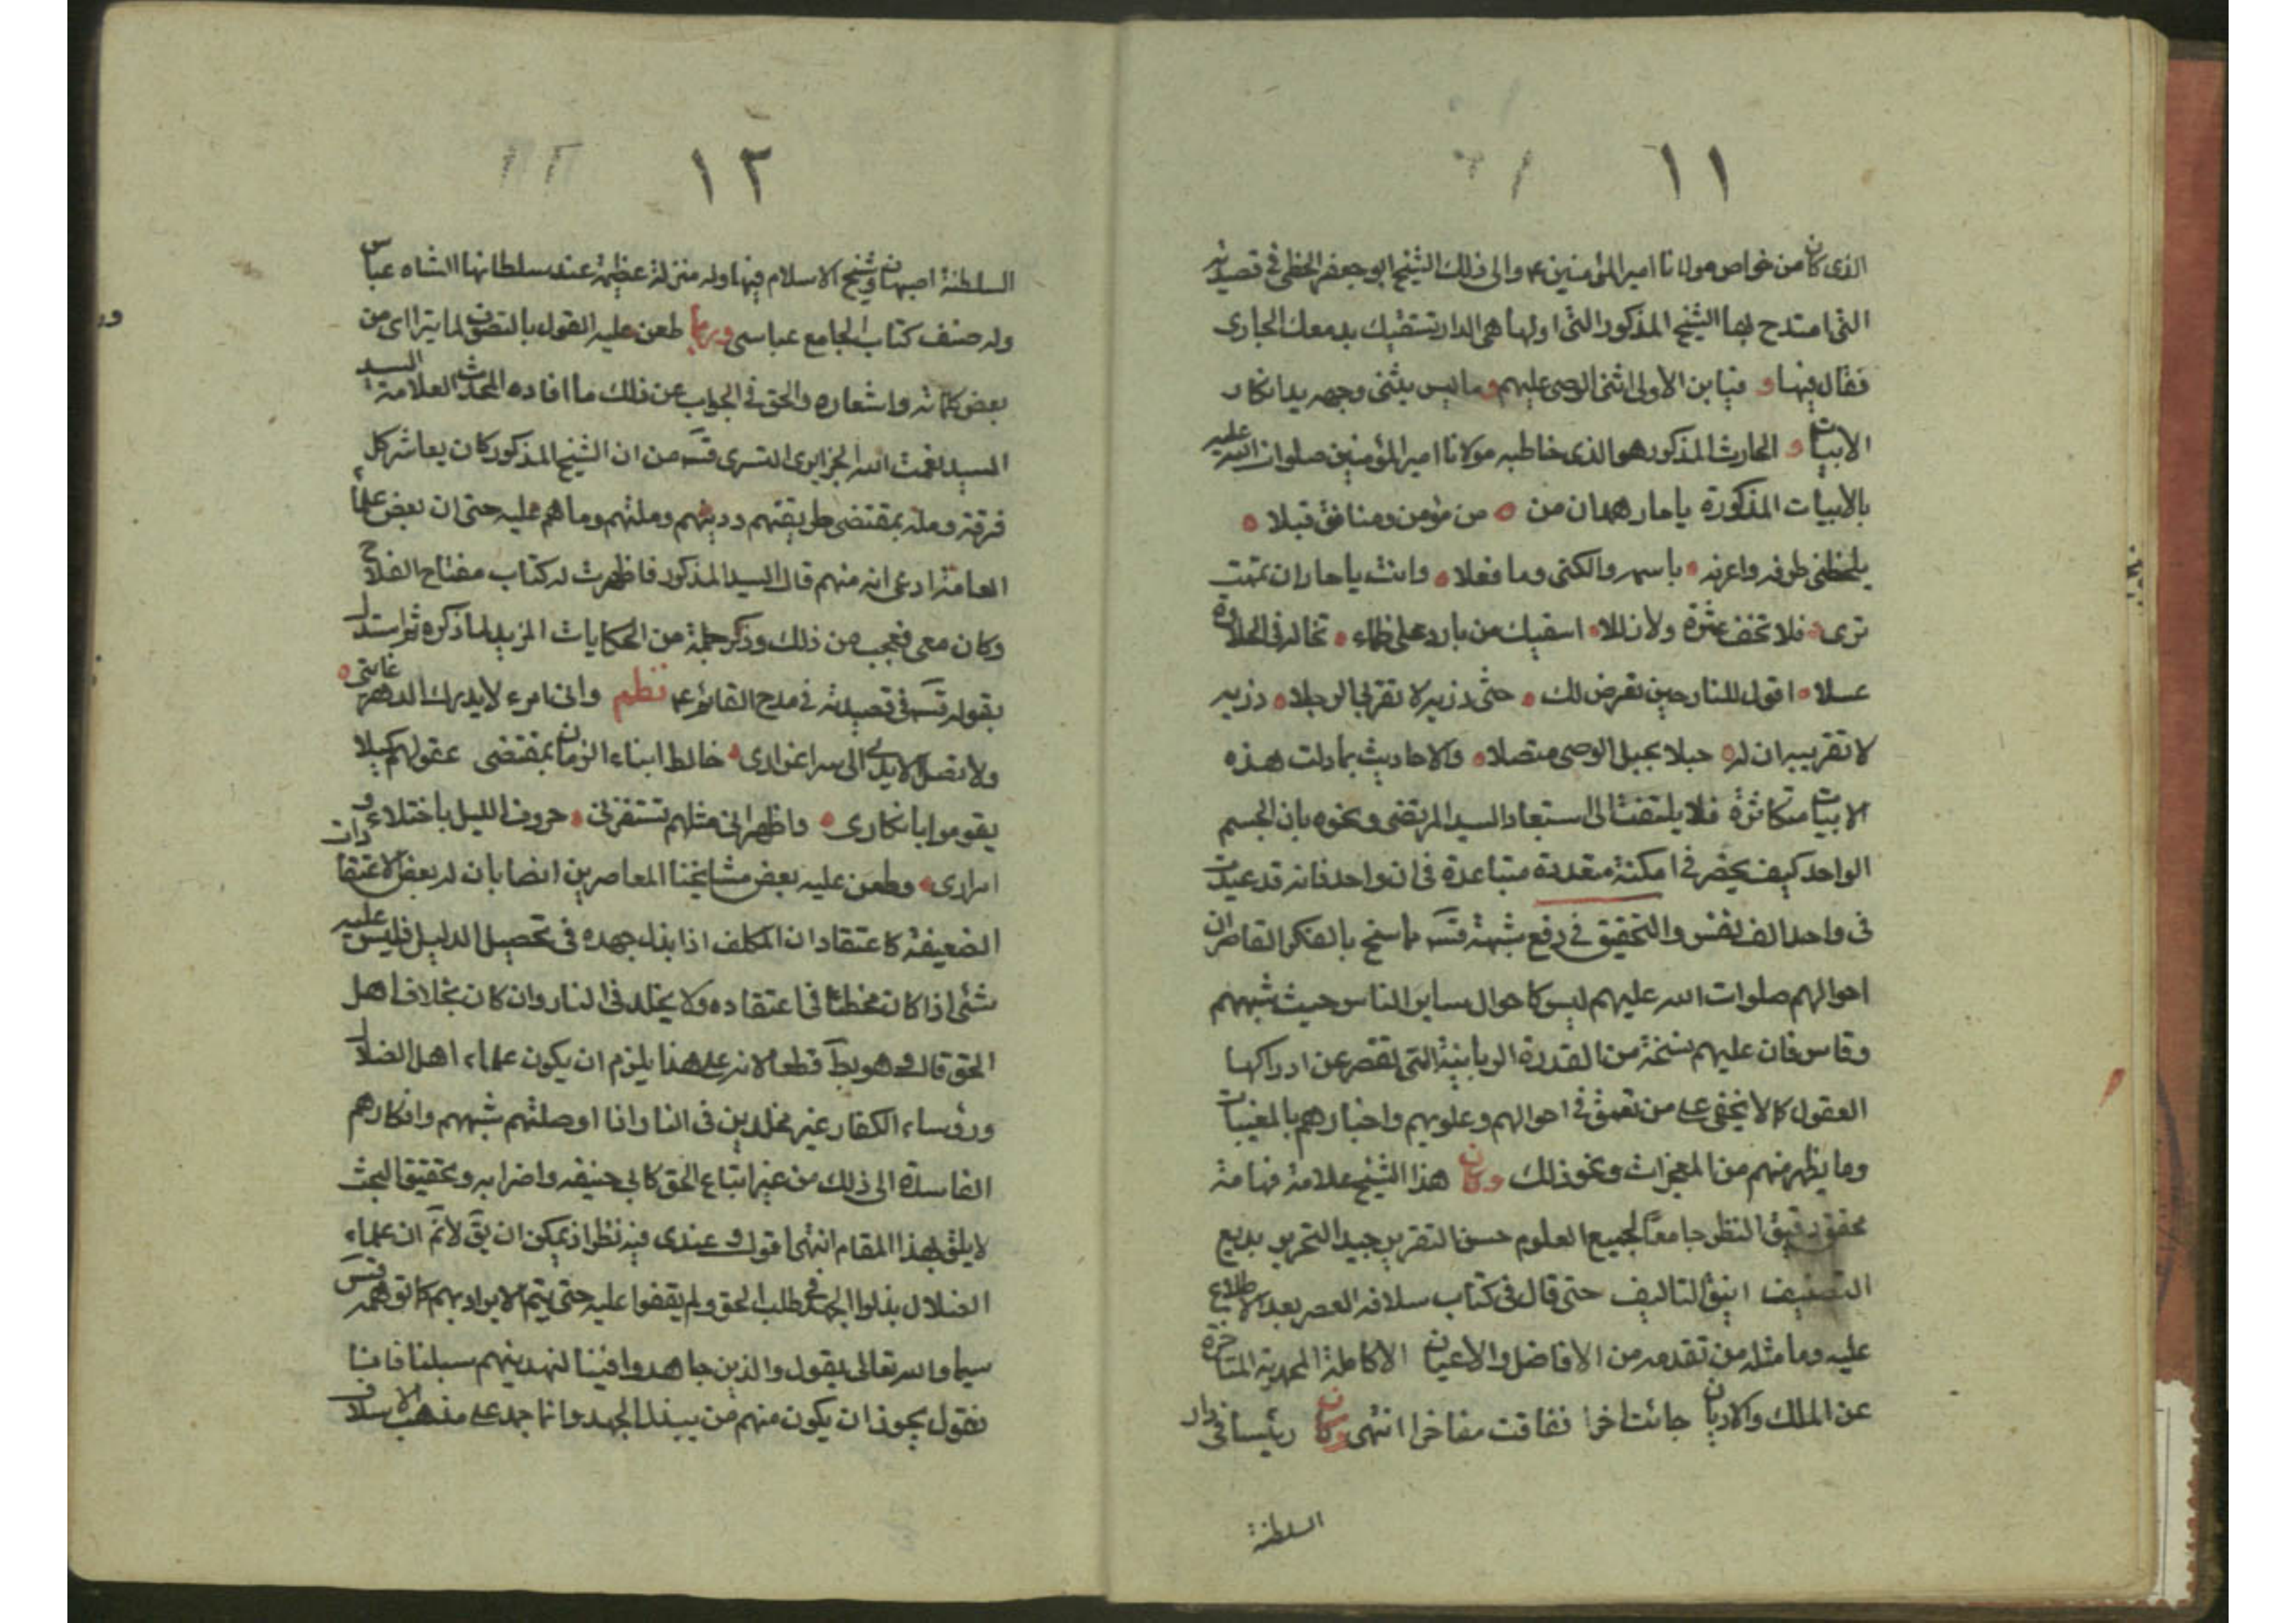 ١١
الذى كان من خواص مولانا امير المؤمنين ع والى ذلك الشيخ ابو جعفر الخطى فى قصيدته
التى امتدح بها الشيخ المذكور التى اولها هى الدار تستقيك بدمعك الجارى
فقال فيها و فيابن الاولى اثنى الوصى عليهم وما ليس يثنى وجهه يد انكار
الابيات و الحارث المذكور هو الذى خاطبه مولانا امير المؤمنين صلوات الله عليه
بالابيات المذكورة ياحار همدان من من مؤمن ومنافق قبلا
يلحظنى طرفه واعرفه باسمه والكنى وما فعلا وانت ياحار ان تمت
ترى فلا تخف عثرة ولا زللا اسقيك من بارد على ظماء تخاله فى الحلاوة
عسلا اقول للنار حين تعرض لك حتى ذريه لا تقربى الرجلا ذريه
لا تقربيه ان له حبلا بحبل الوصى متصلا والاحاديث بما دلت هذه
الابيات متكاثرة فلا يلتفت الى استبعاد السيد المرتضى ونحوه بان الجسم
الواحد كيف يحضر فى امكنة متعددة متباعدة فى ان واحد فانه قد يموت
فى واحد الف نفس والتحقيق فى رفع شبهة قسه ما سنح بالفكر القاصر ان
احوالهم صلوات الله عليهم ليس كاحوال ساير الناس حيث شبههم
وقاس فان عليهم نسخة من القدرة الربانية التى تقصر عن ادراكها
العقول كما لا يخفى على من تعمق فى احوالهم وعلومهم واخبارهم بالمغيبات
وما يظهر منهم من المعجزات ونحو ذلك وكان هذا الشيخ علامة فهامة
محقق دقيق النظر جامعا لجميع العلوم حسن التقرير جيد التحرير بديع
التصنيف انيق التاليف حتى قال فى كتاب سلافه العصر بعد الاطلاع
عليه وما مثله من تقدمه من الافاضل والاعيان الا كالملة المحمدية المتاخرة
عن الملل والاديان جائت اخرا ففاقت مفاخرا انتهى وكان رئيسا فى دار
السلطنة
١٢
السلطنة اصبهان وشيخ الاسلام فيها وله منزلة عظيمة عند سلطانها الشاه عباس
وله صنف كتاب الجامع عباسى وربما طعن عليه القول بالتصوف لما يترا اى من
بعض كلماته واشعاره والحق فى الجواب عن ذلك ما افاده المحدث العلامة السيد
السيد نعمت الله الجزايرى التسترى قسه من ان الشيخ المذكور كان يعاشر كل
فرقة وملة بمقتضى طريقتهم ودينهم وملتهم وما هم عليه حتى ان بعض علماء
العامة ادعى انه منهم قال السيد المذكور فاظهرت له كتاب مفتاح الفلاح
وكان معى فعجب من ذلك وذكر جملة من الحكايات المزيد لما ذكره ثم استدل
بقوله قسه فى قصيدته فى مدح القائم ع نظم وانى امرء لا يدرك الدهر غايتى
ولا تصل الايدى الى سر اغوارى خالط ابناء الزمان بمقتضى عقولهم كيلا
يقوموا بانكارى واظهر انى مثلهم تستفزنى صروف الليل باختلاء و
امرارى وطعن عليه بعض مشايخنا المعاصرين ايضا بان له بعض الاعتقادات
الضعيفة كاعتقاد ان المكلف اذا بذل جهده فى تحصيل الدليل فليس عليه
شئى اذا كان مخطئا فى اعتقاده ولا يخلد فى النار وان كان بخلاف اهل
الحق قال وهو بط قطعا لانه على هذا يلزم ان يكون علماء اهل الضلال
ورؤساء الكفار غير مخلدين فى النار اذا اوصلتهم شبههم وافكارهم
الفاسدة الى ذلك من غير اتباع الحق كابى حنيفه واضرابه وتحقيق البحث
لا يليق بهذا المقام انتهى اقول وعندى فيه نظر اذ يمكن ان يق لانم ان علماء
الضلال بذلوا الجهد فى طلب الحق ولم يقفوا عليه حتى يتم الايراد بهم كما توهمه قسه
سيما والله تعالى يقول والذين جاهدوا فينا لنهدينهم سبلنا فاننا
نقول يجوز ان يكون منهم من يبذل الجهد وانما جمد على مذهب الاسلاف